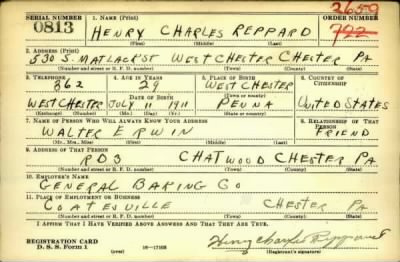 SERIAL NUMBER 1. NAME (Print) ORDER NUMBER
2659
0813 HENRY CHARLES REPPARD 722
(First) (Middle) (Last)
2. ADDRESS (Print)
530 S. MATLACK ST WEST CHESTER CHESTER PA
(Number and street or R. F. D. number) (Town) (County) (State)
3. TELEPHONE 4. AGE IN YEARS 5. PLACE OF BIRTH 6. COUNTRY OF CITIZENSHIP
362 29 WEST CHESTER
DATE OF BIRTH (Town or county)
WEST CHESTER JULY 11 1911 PENNA UNITED STATES
(Exchange) (Number) (Mo.) (Day) (Yr.) (State or country)
7. NAME OF PERSON WHO WILL ALWAYS KNOW YOUR ADDRESS 8. RELATIONSHIP OF THAT PERSON
WALTER ERWIN FRIEND
(Mr., Mrs., Miss) (First) (Middle) (Last)
9. ADDRESS OF THAT PERSON
RD3 CHATWOOD CHESTER PA
(Number and street or R. F. D. number) (Town) (County) (State)
10. EMPLOYER'S NAME
GENERAL BAKING CO
11. PLACE OF EMPLOYMENT OR BUSINESS
COATESVILLE CHESTER PA
(Number and street or R. F. D. number) (Town) (County) (State)
I AFFIRM THAT I HAVE VERIFIED ABOVE ANSWERS AND THAT THEY ARE TRUE.
REGISTRATION CARD
D. S. S. Form 1 (over) 16—17105 Henry Charles Reppard
(Registrant's signature)